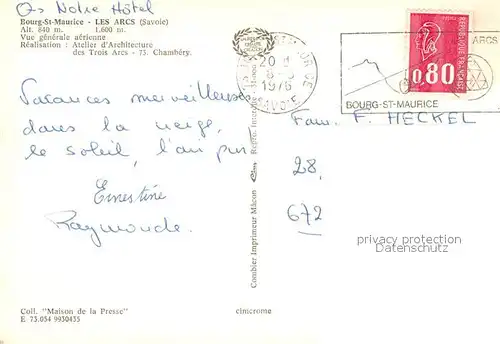 Notre Hôtel
Bourg-St-Maurice - LES ARCS (Savoie)
Alt. 840 m. 1.600 m.
Vue générale aérienne
Réalisation : Atelier d'Architecture
des Trois Arcs - 73. Chambéry.
Vacances merveilleuses
dans la neige,
le soleil, l'air pur!
Ernestine
Raymonde.
Coll. "Maison de la Presse"
E 73.054 9930435
cinicrome
Combier Imprimeur Mâcon
20 H
1976
SAVOIE
ARCS
BOURG-ST-MAURICE
0,80
Fam. F. HECKEL
28,
672
privacy protection
Datenschutz